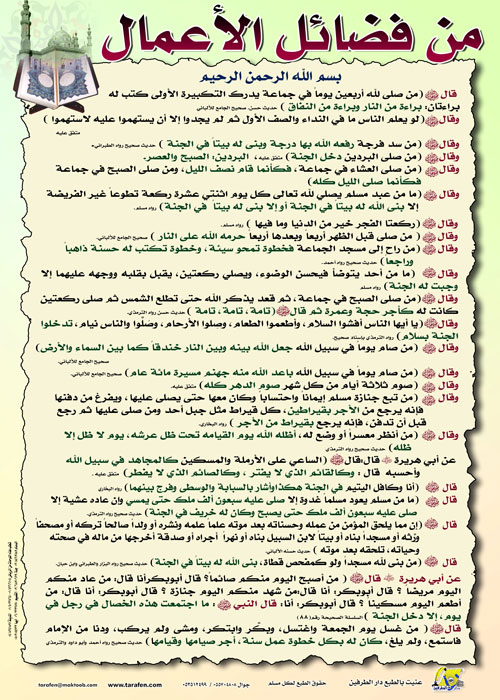 من فضائل الأعمال
بسم الله الرحمن الرحيم
قال ﷺ (من صلى لله أربعين يوماً في جماعة يدرك التكبيرة الأولى كتب له
براءتان: براءة من النار وبراءة من النفاق) حديث حسن صحيح الجامع للألباني
وقال ﷺ (لو يعلم الناس ما في النداء والصف الأول ثم لم يجدوا إلا أن يستهموا عليه لاستهموا)
متفق عليه
وقال ﷺ (من سد فرجة رفعه الله بها درجة وبنى له بيتاً في الجنة) حديث صحيح رواه الطبراني
وقال ﷺ (من صلى البردين دخل الجنة) متفق عليه ، البردين: الصبح والعصر.
وقال ﷺ (من صلى العشاء في جماعة، فكأنما قام نصف الليل، ومن صلى الصبح في جماعة
فكأنما صلى الليل كله)
وقال ﷺ (ما من عبد مسلم يصلي لله تعالى كل يوم اثنتي عشرة ركعة تطوعاً غير الفريضة
إلا بنى الله له بيتاً في الجنة أو إلا بنى له بيتاً في الجنة) رواه مسلم.
وقال ﷺ (ركعتا الفجر خير من الدنيا وما فيها) رواه مسلم.
وقال ﷺ (من صلى قبل الظهر أربعاً وبعدها أربعاً حرمه الله على النار) صحيح الجامع للألباني
وقال ﷺ (من راح إلى مسجد الجماعة فخطوة تمحو سيئة، وخطوة تكتب له حسنة ذاهباً
وراجعا) حديث صحيح رواه احمد.
وقال ﷺ (ما من أحد يتوضأ فيحسن الوضوء، ويصلي ركعتين، يقبل بقلبه ووجهه عليهما إلا
وجبت له الجنة) رواه مسلم
وقال ﷺ (من صلى الصبح في جماعة، ثم قعد يذكر الله حتى تطلع الشمس ثم صلى ركعتين
كانت له كأجر حجة وعمرة ثم قال ﷺ (تامة، تامة، تامة) حديث حسن رواه الترمذي.
وقال ﷺ (يا أيها الناس أفشوا السلام، وأطعموا الطعام، وصلوا الأرحام، وصلوا والناس نيام، تدخلوا
الجنة بسلام) رواه الترمذي بإسناد صحيح.
وقال ﷺ (من صام يوماً في سبيل الله جعل الله بينه وبين النار خندقاً كما بين السماء والأرض)
صحيح الجامع للألباني.
وقال ﷺ (من صام يوماً في سبيل الله باعد الله منه جهنم مسيرة مائة عام) صحيح الجامع للألباني.
وقال ﷺ (صوم ثلاثة أيام من كل شهر صوم الدهر كله) متفق عليه.
وقال ﷺ (من تبع جنازة مسلم إيمانا واحتسابا وكان معها حتى يصلى عليها، ويفرغ من دفنها
فإنه يرجع من الأجر بقيراطين، كل قيراط مثل جبل أحد ومن صلى عليها ثم رجع
قبل أن تدفن، فإنه يرجع بقيراط من الأجر) رواه البخاري.
وقال ﷺ (من أنظر معسراً أو وضع له، أظله الله يوم القيامه تحت ظل عرشه، يوم لا ظل إلا
ظله) حديث صحيح رواه الترمذي.
عن أبي هريرة قال: قال ﷺ (الساعي على الأرملة والمسكين كالمجاهد في سبيل الله
وأحسبه قال: وكالقائم الذي لا يفتر ، وكالصائم الذي لا يفطر) متفق عليه.
قال ﷺ (أنا وكافل اليتيم في الجنة هكذا وأشار بالسبابة والوسطى وفرج بينهما) رواه البخاري
قال ﷺ (ما من مسلم يعود مسلما غدوة إلا صلى عليه سبعون ألف ملك حتى يمسي وإن عاده عشية إلا
صلى عليه سبعون ألف ملك حتى يصبح وكان له خريف في الجنة) حديث حسن رواه الترمذي.
قال ﷺ (إن مما يلحق المؤمن من عمله وحسناته بعد موته علما علمه ونشره أو ولداً صالحا تركه أو مصحفاً
ورثه أو مسجداً بناه أو بيتا لابن السبيل بناه أو نهراً أجراه أو صدقة أخرجها من ماله في صحته
وحياته، تلحقه بعد موته) حديث حسنه الألباني
قال ﷺ (من بنى لله مسجداً ولو كمفحص قطاة، بنى الله له بيتاً في الجنة) حديث صحيح رواه البزار والطبراني وابن حبان.
عن أبي هريرة قال ﷺ (من أصبح اليوم منكم صائما؟ قال أبوبكر أنا، قال: من عاد منكم
اليوم مريضا ؟ قال أبوبكر: أنا قال:من شهد منكم اليوم جنازة ؟ قال أبوبكر: أنا قال: من
أطعم اليوم مسكينا ؟ قال أبوبكر: أنا، قال النبي ﷺ: ما اجتمعت هذه الخصال في رجل في
يوم، إلا دخل الجنة) السلسلة الصحيحة رقم (٨٨)
قال ﷺ (من غسل يوم الجمعة واغتسل، وبكر وابتكر، ومشى ولم يركب، ودنا من الإمام
فاستمع، ولم يلغ، كان له بكل خطوة عمل سنة، أجر صيامها وقيامها) حديث صحيح رواه أحمد وأبو داود والترمذي
عنيت بالطبع دار الطرفين
حقوق الطبع لكل مسلم
www.tarafen.com
tarafen@maktoob.com